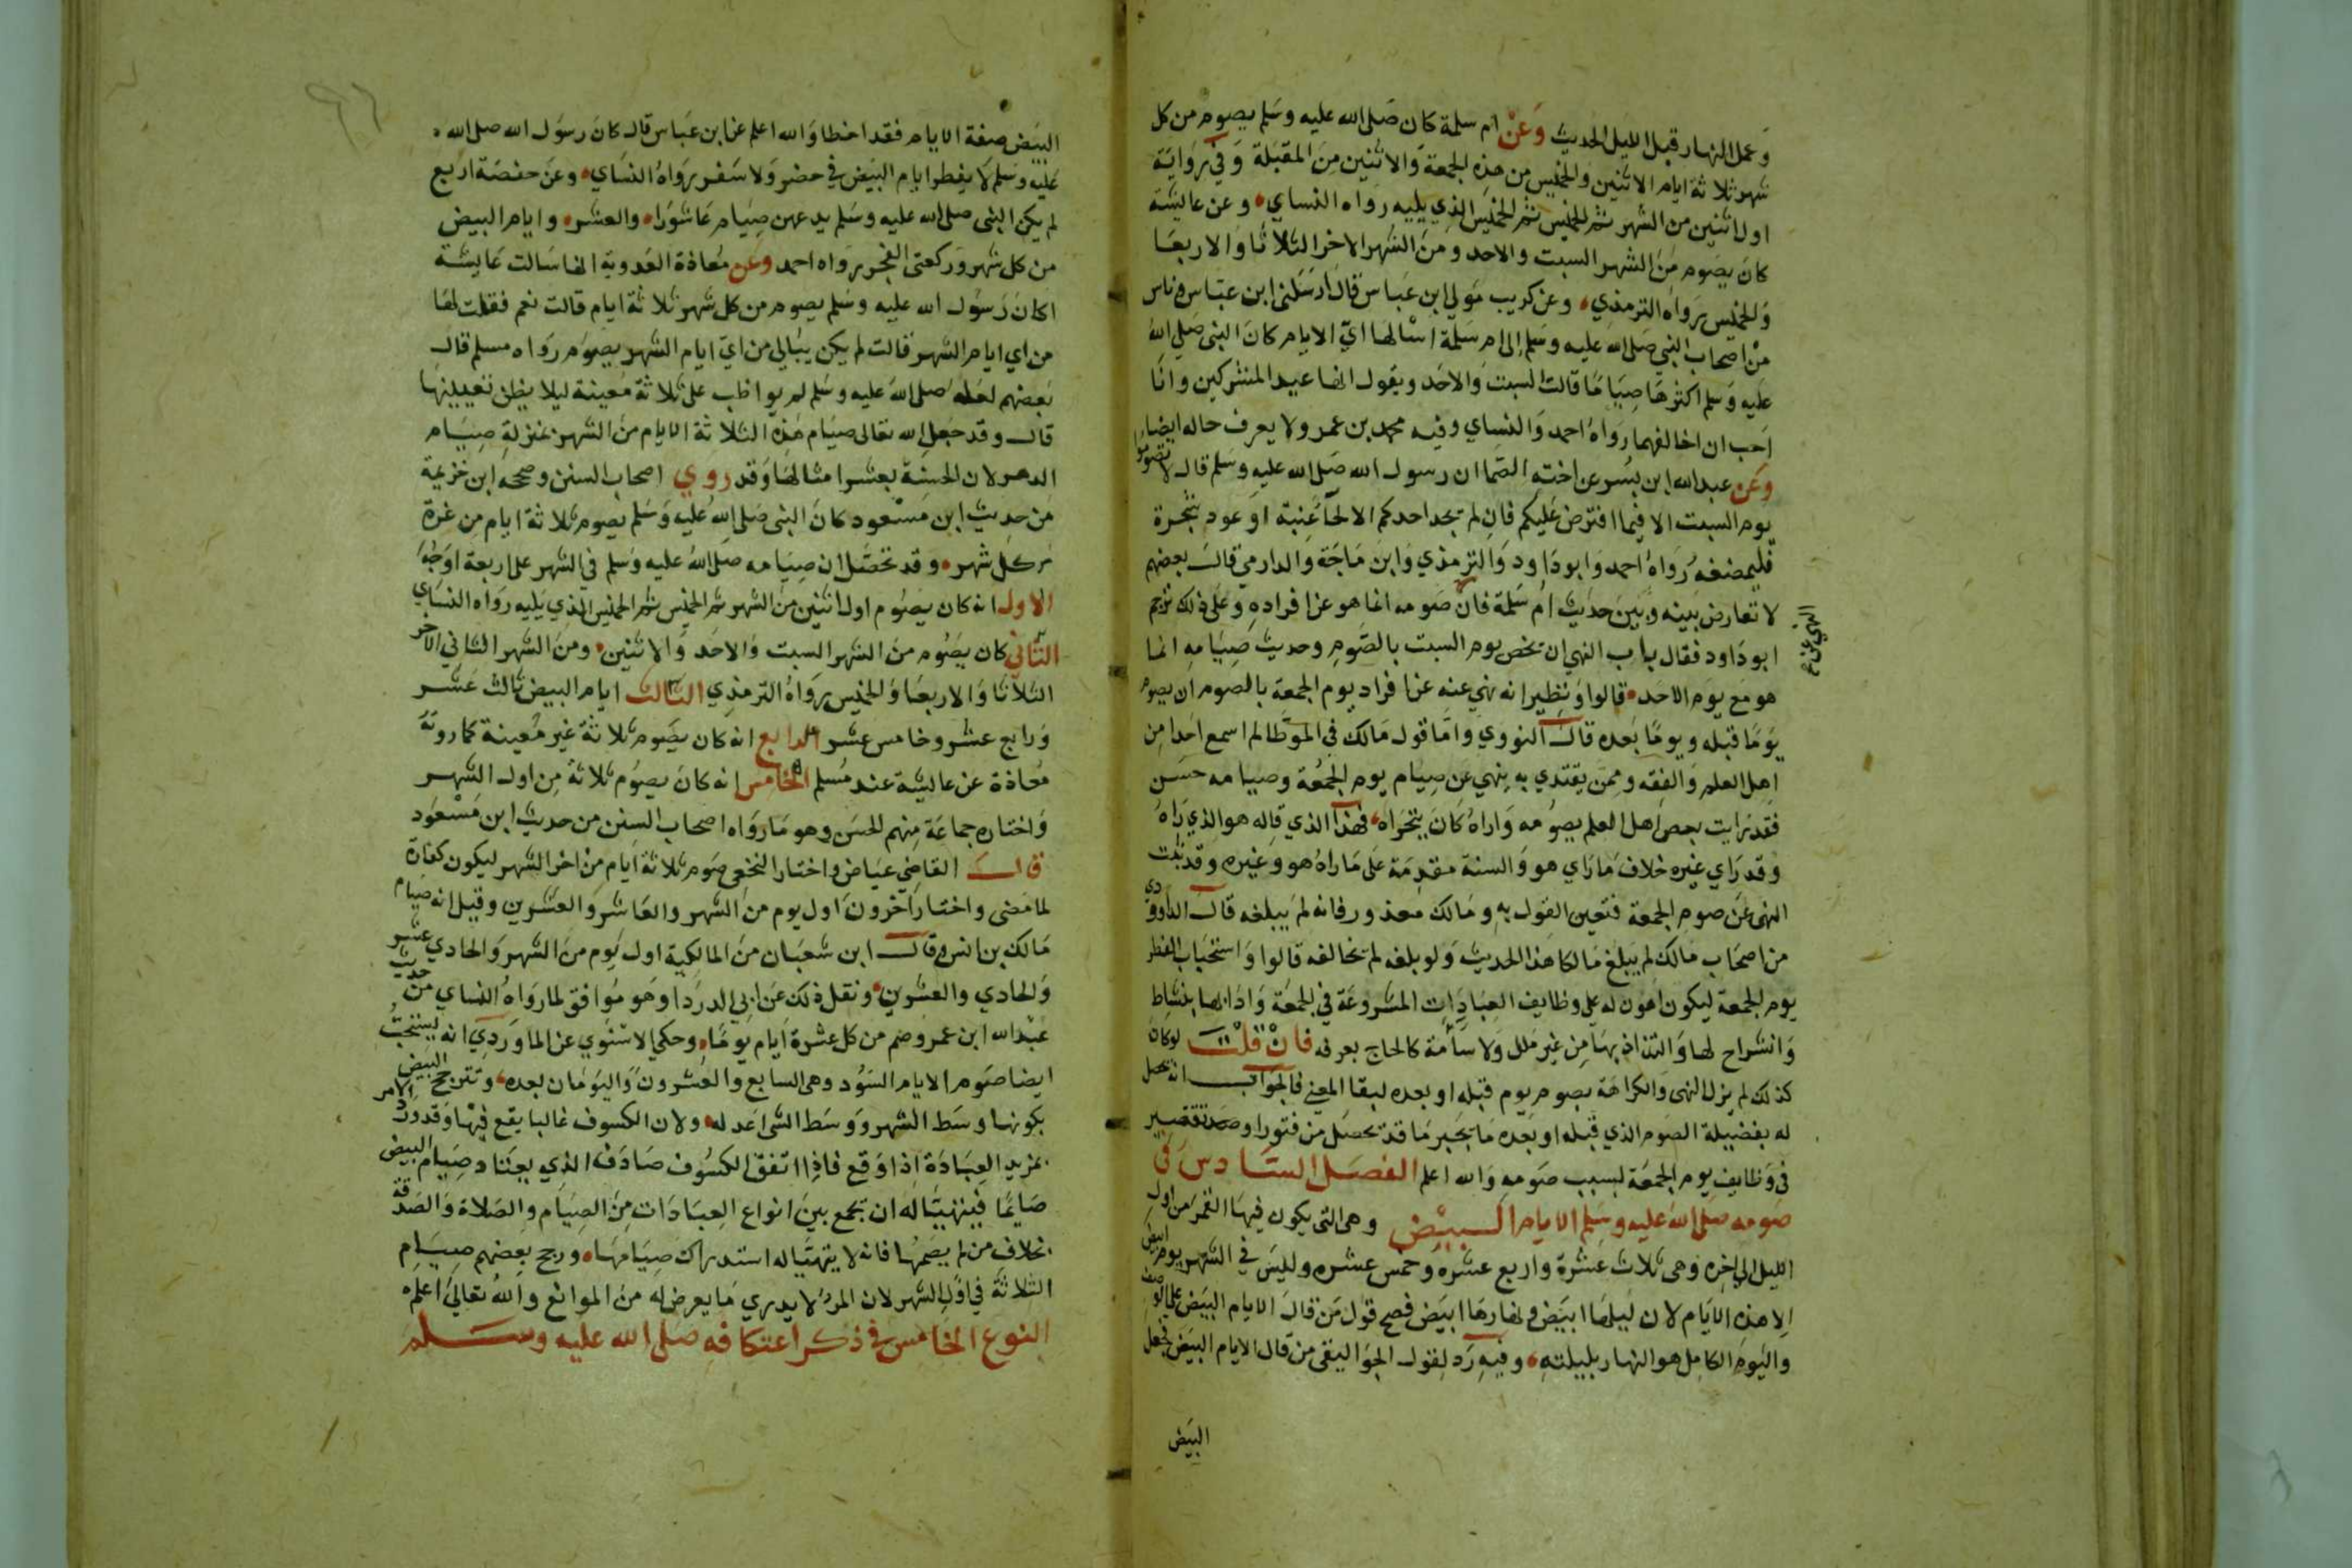 وَعمل النهار قبل الليل الحديث وَعَنْ ام سلمة كان صَلى الله عليه وسَلم يصوم من كل
شهر ثلاثة ايام الاثنين والخميس من هذه الجمعة وَالاثنين مِنَ المقبَلة وَفي روَايَة
اول اثنين من الشهر ثم الخميس ثم الخميس الذي يليه رواه النساي وعن عايشة
كان يصَوم مِنَ الشهر السبت والاحد ومن الشهر الاخر الثلاثا وَالاربعَا
وَالخميس رواه الترمذي وعن كريب مَولي ابن عَباس قال ارسَلني ابن عبَاس وناس
من اصحاب النبي صَلى الله عليه وسَلم الى ام سَلمة اسْالها ايّ الايام كانَ النبي صَلى الله
عليه وَسَلم اكثرهَا صِيَامًا قالت السبت وَالاحَد ويقول انها عيد المشركين وانَا
احَب ان اخالفهما رَوَاهُ احمد وَالنسَاي وفيه محمد بن عمر ولا يعرف حاله ايضا
وعَن عبد الله ابن بسُر عن اخته الصَما ان رسول الله صَلى الله عليه وسلم قال لا تصومُوا
يوم السبت الا فيما افترض عَليكم فان لم يجد احدكم الا لحَا عِنبة او عود شجرة
فليمضغه رَوَاهُ احمد وَابودَاود وَالترمذي وَابن مَاجَة وَالدارمي قالَ بعضهم
لا تعارض بَينه وَبَينَ حدَيث ام سَلمة فان صَومه انما هو عن افرادهِ وَعلى ذلك ترجم
ابو دَاود فقال باب النهي ان يخص يوم السبت بالصَّومِ وحديث صِيَامهِ انما
هو مَع يَوم الاحَد قالوا وَنظير انه نهي عنه عن افراد يوم الجمعة بالصوم ان يصوم
يَومًا قبله ويومًا بَعده قالَ النووي وَامَّا قول مَالك في الموَطا لم اسمع احَدا مِن
اهل العلم وَالفقه وممن يقتدي به ينهي عَن صِيام يوم الجمُعة وصيامه حسَن
فقد رَايت بعض اهل العلم يصومُه وَاراهُ كانَ يتحَراه فهذا الذي قاله هو الذي رَاهُ
وقد رَاي غيره خلاف مَا رَاي هو وَالسنة مقدمَة عَلى مَا راهُ هو وَغيره وقد ثبت
النهي عَن صوم الجمعة فتعين القول به ومَالك معذور فانه لم يَبلغه قالَ الداودي
من اصحَاب مَالك لم يَبلغ مَالكا هَذا الحديث وَلو بلغه لم يخالفه قالوا وَاستحبَاب الفطر
يوم الجمعة ليكون اهون له على وظايف العِبَادَات المشروعَة في الجمعَة وَادَائها بنشاط
وَانشراح لها وَالتذاذ بهَا مِن غير مَلل وَلا سآمَة كالحاج بعرفه فانْ قلتَ لو كان
كذلك لم يزل النهي وَالكراهَة بصوم يوم قبله او بعده لبقا المعني فالجوَاب انه يحصل
له بفضيلة الصَوم الذي قبله او بَعده مَا يجبر مَا قد يحصَل من فتور او تقصير
في وَظايف يوم الجمعَة لسبب صَومهِ وَالله اعلم الفصَل السَّادسَ في
صَومه صلى الله عليه وسَلم الايام البيْض وهى التي يكون فيهَا القمر مِن اول
الليل الى اخِره وهى ثلاث عَشرة وَاربع عشَره وخمس عشره وليسَ في الشهر يوم ابيض
الا هذه الايَام لان ليلهَا ابيَض ونهارهَا ابيَض فصح قوَل مَن قالَ الايام البيَض على الوصف
وَاليوم الكامِل هو النهار بليلتهِ وفيهِ رَد لقول الجوَاليقى من قال الايام البيَض فجعل
البيَض
البيَض صفة الايام فقد اخطا وَالله اعلم عن ابن عبَاس قال كانَ رسوَل الله صلى الله
عَليه وسَلم لا يفطر ايام البيَض في حضر وَلا سَفر رَوَاهُ النسَاي وعَن حفصَة اربع
لم يكن النبى صلى الله عليه وسَلم يدعهن صِيَام عَاشوَرا والعشر وايام البيض
من كل شهر وَركعتى الفجر رَوَاه احمد وَعَن مُعاذة العَدوية انها سَالت عَايشَة
اكانَ رَسُول الله عليه وسَلم يصوم من كل شهر ثلاثة ايام قالت نعم فقلت لهَا
من اي ايام الشهر قالت لم يكن يبَالي من ايّ ايام الشهر يصوم رَوَاه مسلم قالَ
بَعضهم لعَله صلى الله عليه وسَلم لم يواظب على ثلاثة مُعينة ليلا يظن تعيينهَا
قال وقد جعل الله تعالى صيَام هَذه الثلاثة الايام منَ الشهر بمنزلةِ صِيَام
الدهر لان الحسَنة بعشر امثالهَا وَقد رَوي اصحاب السنن وصححه ابن خزيمة
من حديث ابن مسْعود كانَ النبى صَلى الله عُليه وَسَلم يصوم ثلاثة ايام مِن غرة
كل شهر وقد تحصَل ان صِيَامه صلى الله عليه وسَلم في الشهر على اربعة اوجُه
الاول انه كان يصَوُم اول اثنين منَ الشهر ثم الخميس ثم الخميس الذي يَليه رَوَاه النسَاي
الثَّاني كان يصَوُم منَ الشهر السبت وَالاحَد وَالاثنين ومنَ الشهر الثاني الاخر
الثلاثا وَالاربعَا وَالخميس رَوَاهُ الترمذِي الثالث ايام البيض ثالث عَشَر
وَرَابع عشر وخامس عشر الرابع انه كان يصَوم ثلاثة غير مُعينة كما روَته
مُعَاذة عن عايشة عند مُسلم الخامس انه كانَ يصوُم ثلاثة مِن اول الشهر
وَاختاره جماعَة مِنهم الحسَن وهو مَا رَوَاه اصحاب السنن من حديث ابن مسْعوَد
قالَ القاضِي عيَاض وَاختار النخعي صَوم ثلاثة ايام من اخر الشهر ليكون كفارة
لما مَضى وَاختار اخرُون اول يوم من الشهر وَالعَاشر وَالعشرين وقيل انه صيام
مَالك بن انس وقالَ ابن شعبَان منَ المالكية اول يَوم منَ الشهر وَالحادي عشر
وَالحادي والعشرين ونقل ذلك عَن ابي الدردَا وَهو مُوَافق لما رَواهُ النسَاي من حديث
عبْد الله ابن عمرو صم من كل عشرة ايَام يومًا وحكي الاسْنوي عن الماوَردي انه يستحبُ
ايضا صَوم الايام السَوُد وهى السابع وَالعُشرون وَاليَومَان بعده وتترجح البيض
بكونها وسَط الشهر ووَسَط الشي اعدله ولان الكسوف غالبا يقع فيهَا وَقد وَرد الامر
بمزيد العِبَادَة اذا وَقع فاذا اتفق الكسُوف صَادَف الذي يعتَاد صِيَام البيض
صَايمًا فيتهيَّا لهُ ان يجمع بينَ انواع العِبَادَات مِنَ الصِيَام وَالصَلاة وَالصَدقة
بخلافِ من لم يصَمْهَا فانه لا يتهيَّا له استدراك صِيَامهَا ورجح بعضهم صِيَام
الثلاثة في اوَل الشهر لان المرءَ لا يدرِي مَا يعرض له منَ الموانع وَالله تعَالىَ اعلم
النوع الخامس في ذكر اعتكافهِ صَلى الله عليه وسَلم